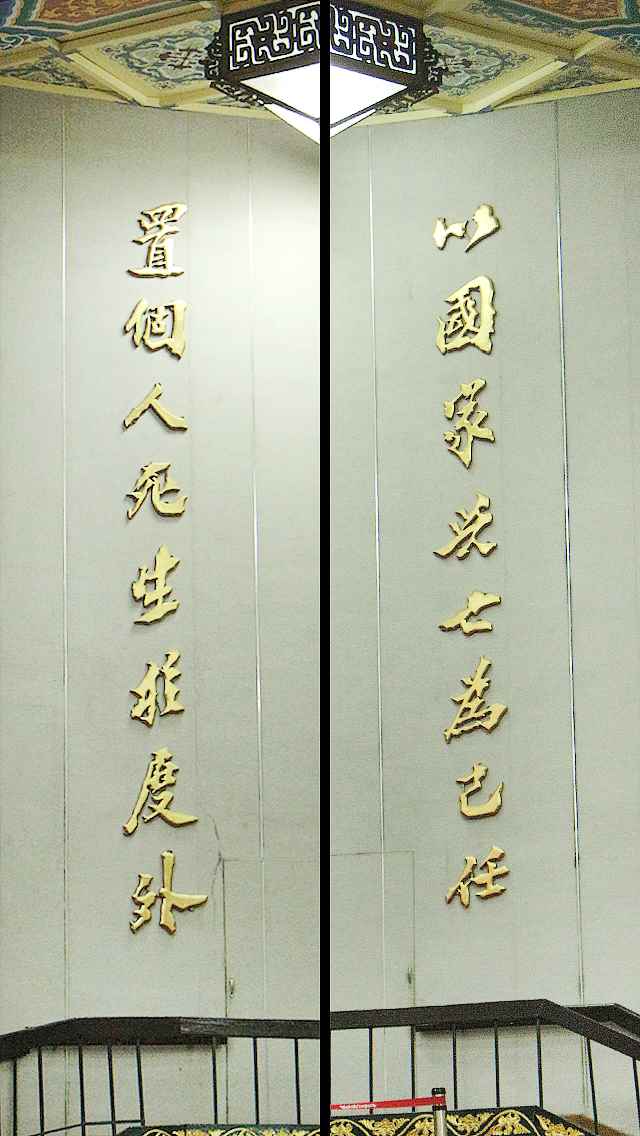 以國家興亡為己任
置個人死生於度外